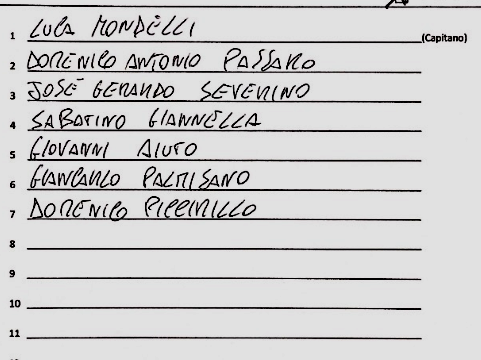 1 LUCA MONDELLI (Capitano)
2 DOMENICO ANTONIO PASSARO
3 JOSÉ GERARDO SEVERINO
4 SABATINO GIANNELLA
5 GIOVANNI AIUTO
6 GIANCARLO PALMISANO
7 DOMENICO PICCIRILLO
8
9
10
11